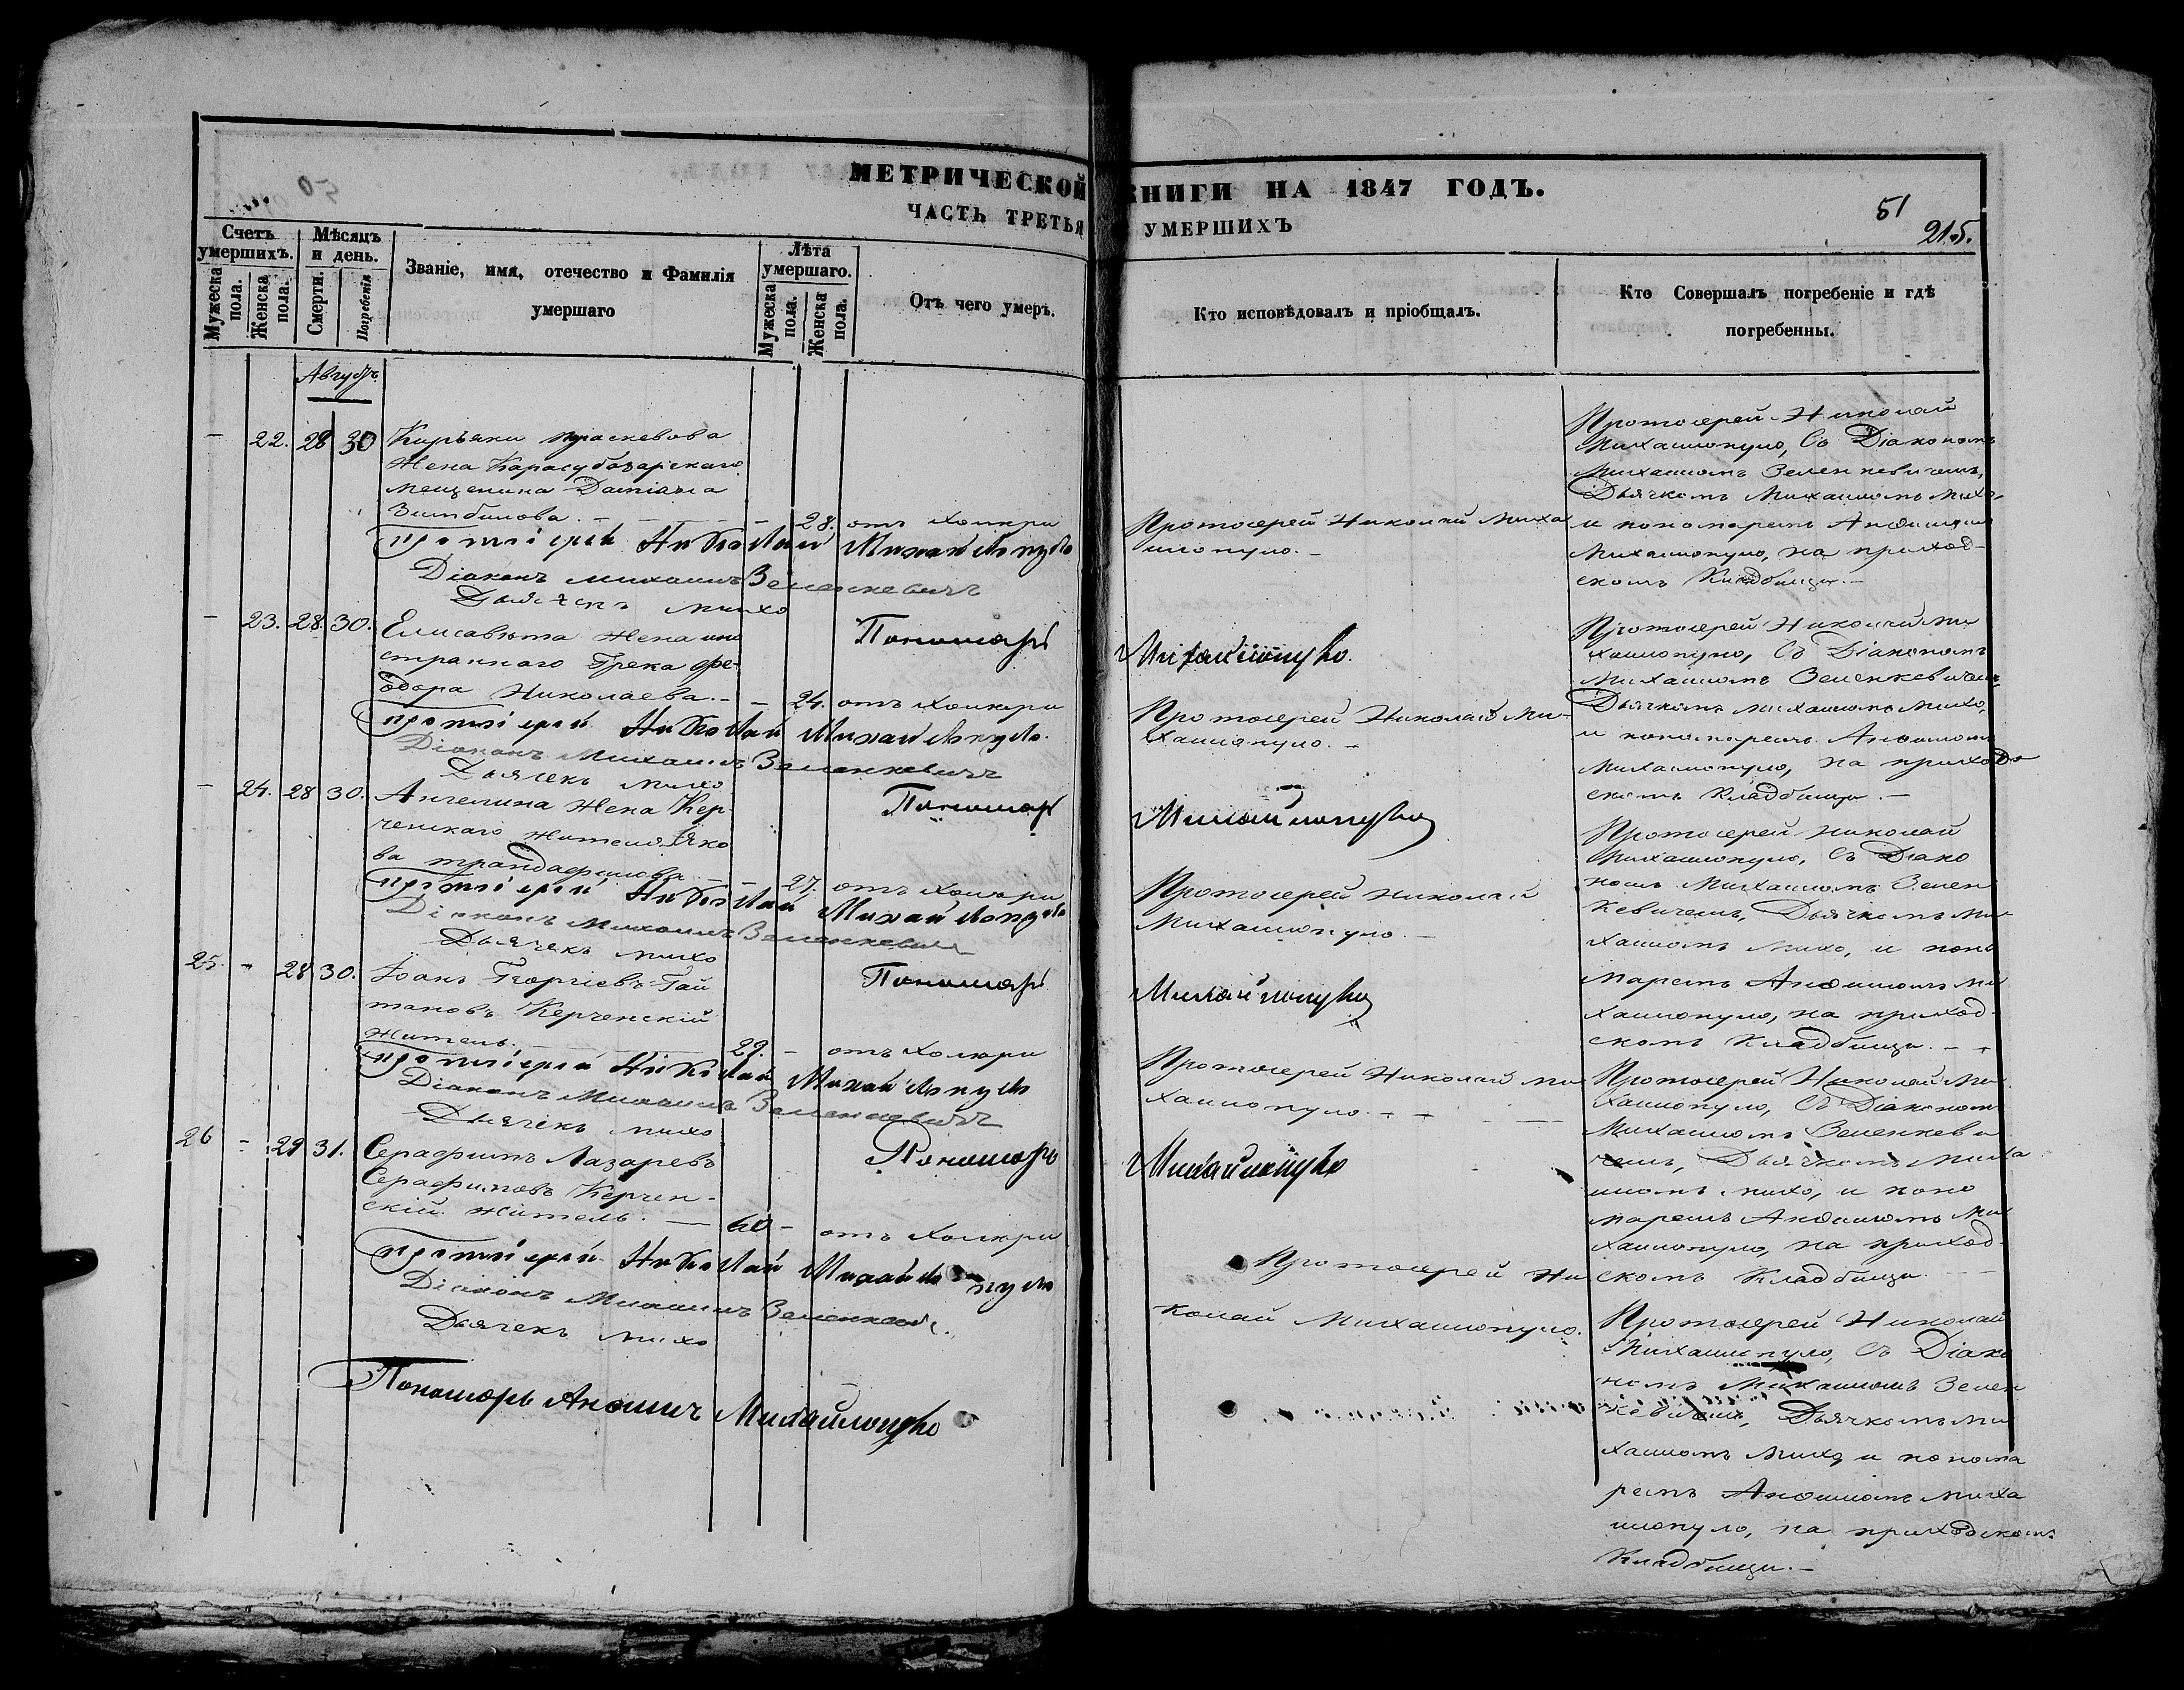 МЕТРИЧЕСКОЙ КНИГИ НА 1847 ГОДЪ.
ЧАСТЬ ТРЕТЬЯ УМЕРШИХЪ
51
215.
Счетъ умершихъ.
Мужеска пола.
Женска пола.
Мѣсяцъ и день.
Смерти.
Погребенія
Званіе, имя, отечество и Фамилія
умершаго
Лѣта умершаго.
Мужеска пола.
Женска пола.
Отъ чего умеръ.
Кто исповѣдовалъ и пріобщалъ.
Кто Совершалъ погребеніе и гдѣ
погребенны.
Августъ
– 22. 28 30
Кирьяки
Жена Карасубазарскаго
мещенина Даміана
28. отъ холери
Протоіерей Николай Миха
илопуло. –
Протоіерей Николай
Михаилопуло, Съ Діакономъ
Михаиломъ Зеленкевичемъ,
Дьячкомъ Михаиломъ Михо
и пономаремъ
Михаилопуло, на приход-
скомъ Кладбищи. –
Протоіерей Николай Михайлопуло
Діаконъ Михаилъ Зеленкевичъ
Дьячекъ Михо
Пономарь Михайлопуло.
– 23. 28. 30.
Елисавета Жена ино
страннаго Грека Фе-
одора Николаева. –
– 24. отъ холери
Протоіерей Николай Ми-
хаилопуло. –
Протоіерей Николай Ми
хаилопуло, Съ Діакономъ
Михаиломъ Зеленкевичемъ,
Дьячкомъ Михаиломъ Михо,
и пономаремъ
Михаилопуло, на приход
скомъ Кладбищи. –
Протоіерей Николай Михайлопуло.
Діаконъ Михаилъ Зеленкевичъ
Дьячекъ Михо
Пономарь Михайлопуло
– 24. 28 30.
Ангелина Жена Кер
ченскаго жителя Яко
ва Трандафилова –
– 27. отъ холери
Протоіерей Николай
Михаилопуло. –
Протоіерей Николай
Михаилопуло, Съ Діако
номъ Михаиломъ Зелен
кевичемъ, Дьячкомъ Ми
хаиломъ Михо, и поно
маремъ Ми
хаилопуло, на приход
скомъ Кладбищи. –
Протоіерей Николай Михайлопуло
Діаконъ Михаилъ Зеленкевичъ
Дьячекъ Михо
Пономарь Михайлопуло
25. – 28 30.
Іоанъ Георгіевъ Гай
тановъ Керченскій
житель. –
29. – отъ холери
Протоіерей Николай Ми
хаилопуло. –
Протоіерей Николай Ми
хаилопуло, Съ Діакономъ
Михаиломъ Зеленкеви
чемъ, Дьячкомъ Миха
иломъ Михо, и поно
маремъ Ми
хаилопуло, на приход
скомъ Кладбищи.
Протоіерей Николай Михайлопуло
Діаконъ Михаилъ Зеленкевичъ
Дьячекъ Михо
Пономарь Михайлопуло
26 – 29 31.
Серафимъ Лазаревъ
Серафимовъ Керчен-
скій житель. –
60 – отъ холери
Протоіерей Ни
колай Михаилопуло.
Протоіерей Николай
Михаилопуло, Съ Діако
номъ Михаиломъ Зелен
кевичемъ, Дьячкомъ Ми
хаиломъ Михо и понома
ремъ Миха
илопуло, на приходскомъ
Кладбищи. –
Протоіерей Николай Михайлопуло
Діаконъ Михаилъ Зеленкевичъ.
Дьячекъ Михо
Пономарь Михайлопуло